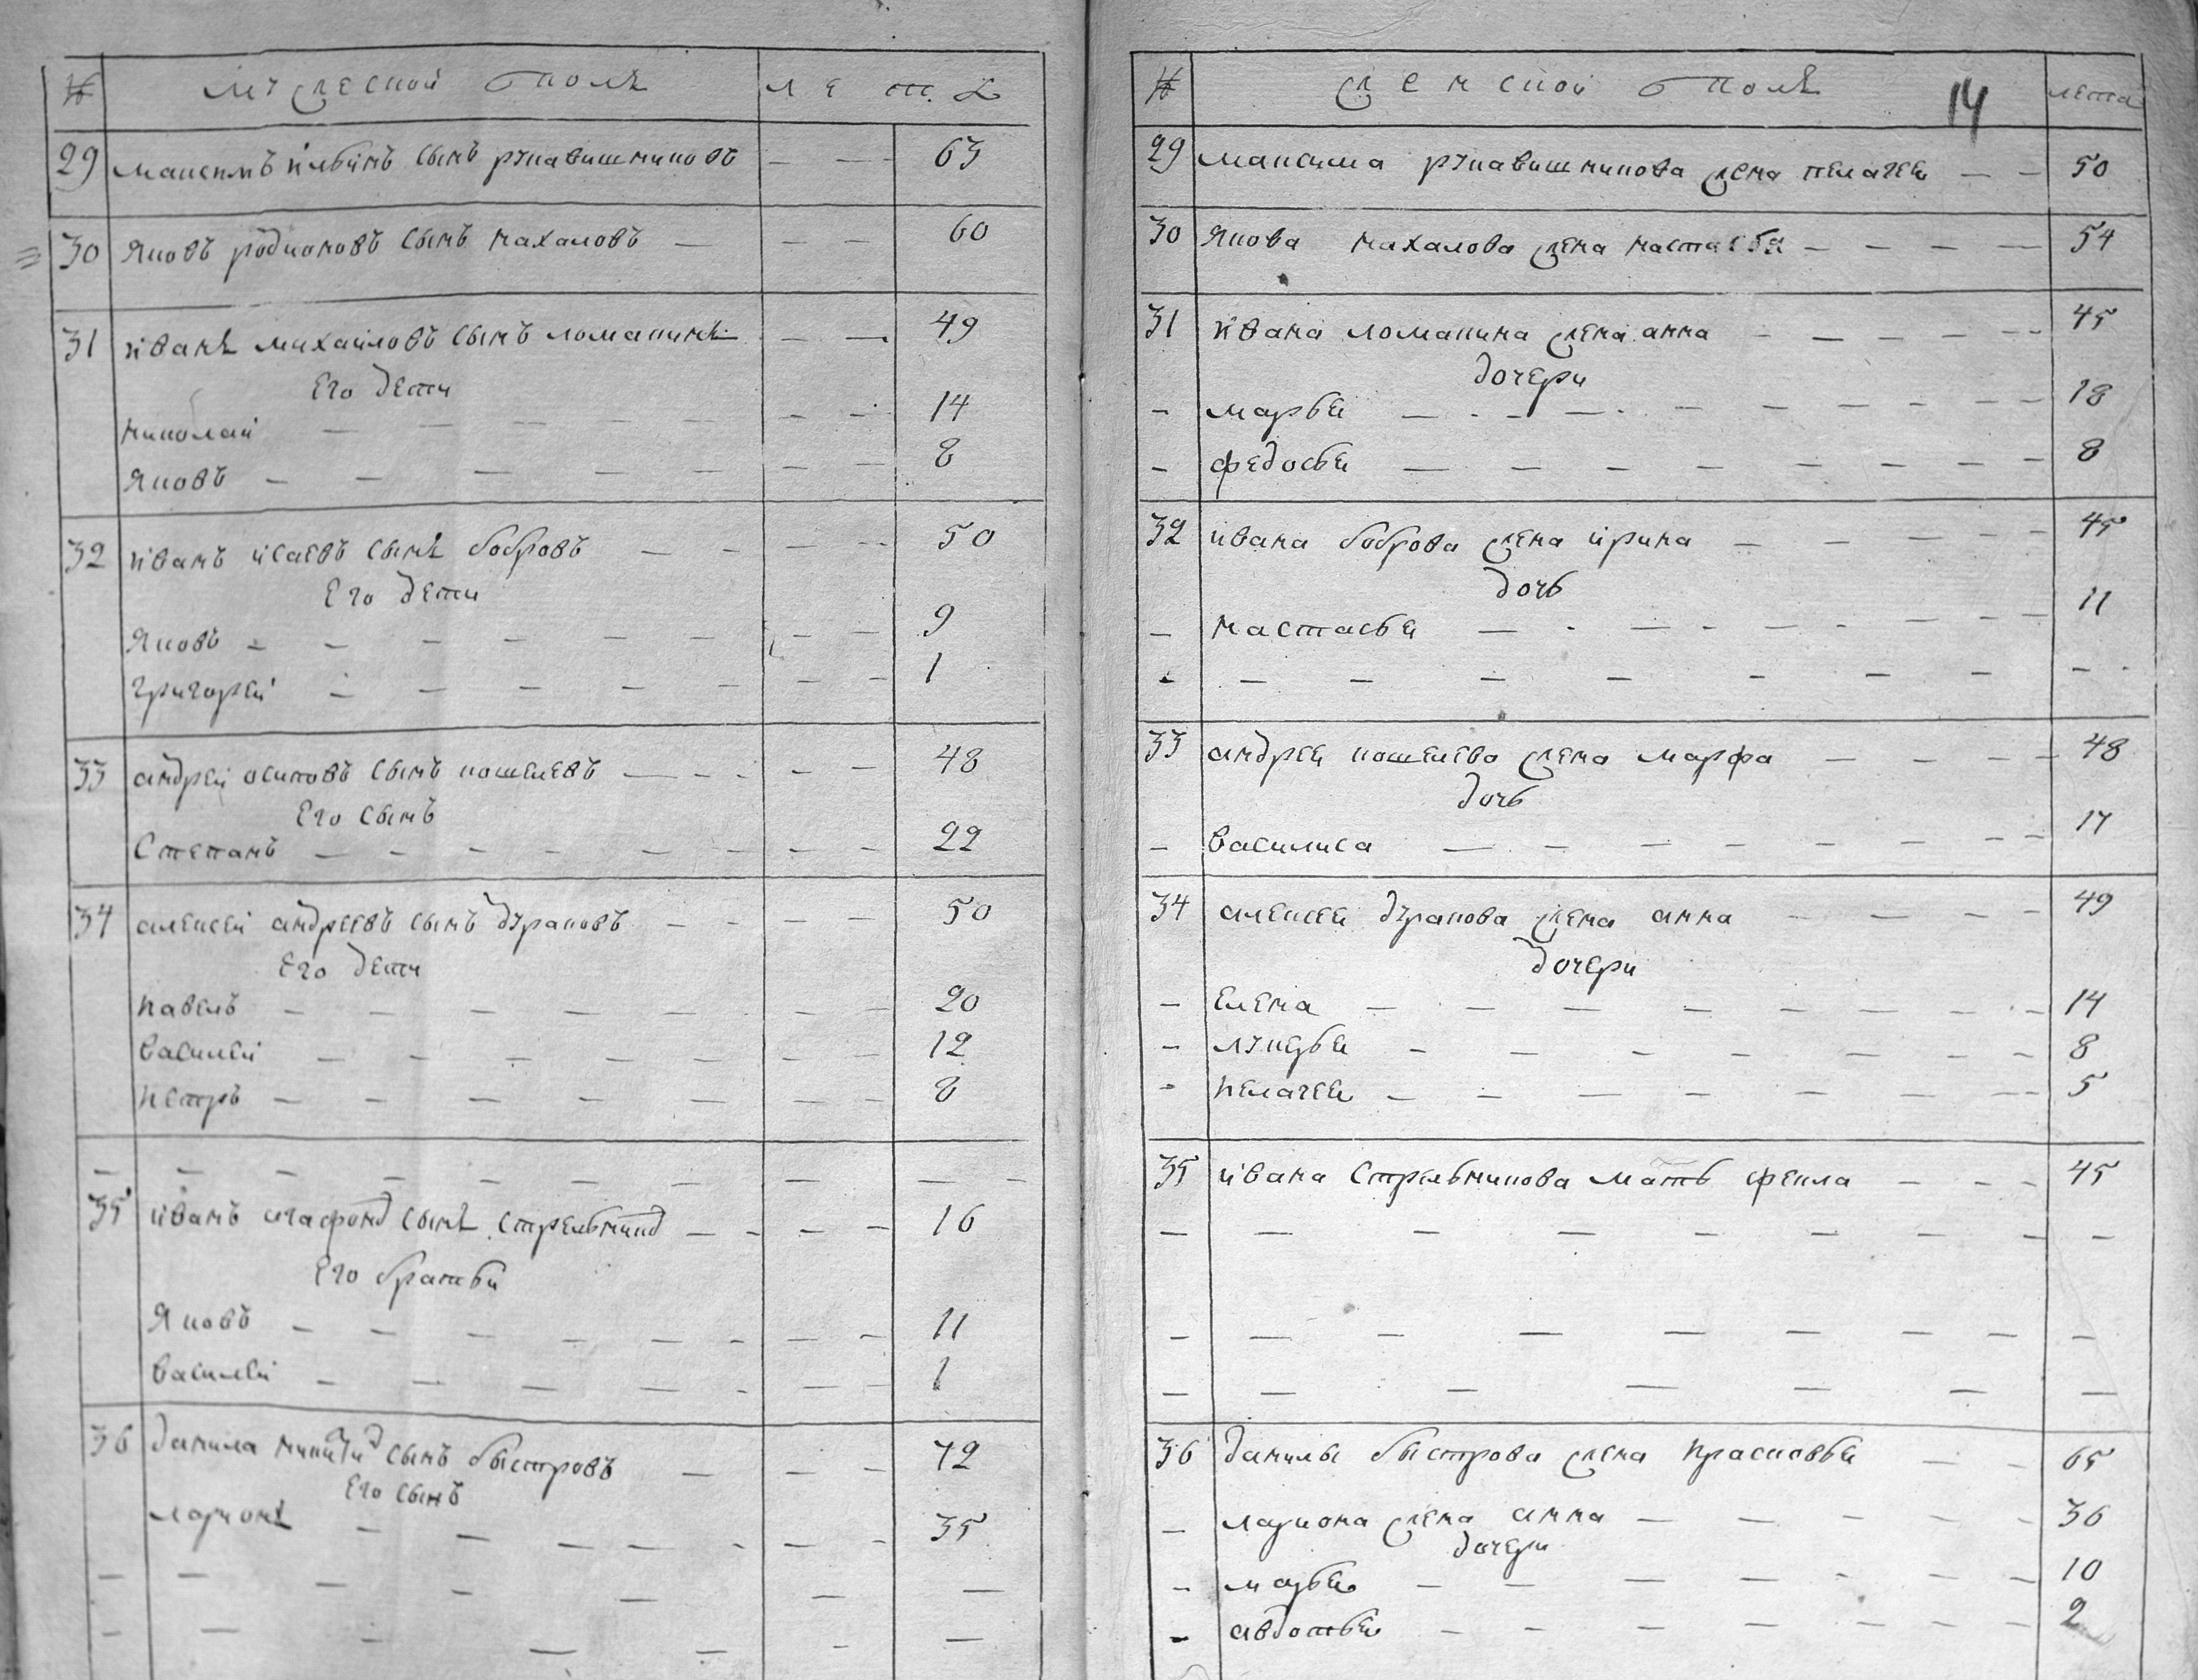 № мужескои ѡ полѣ лета
29 максимъ ильинъ сынъ рукавишниковъ — — — 63
30 яковъ родионовъ сынъ махаловъ — — — 60
31 иванъ михаиловъ сынъ ломакинъ — — 49
его дети
николаи — — — — — — — 14
яковъ — — — — — — — 8
32 иванъ исаевъ сынъ бобровъ — — — — 50
его дети
яковъ — — — — — — — — 9
григореи — — — — — — — 1
33 андреи осиповъ сынъ кошелевъ — — — — — 48
его сынъ
степанъ — — — — — — — — 22
34 алексеи андреевъ сынъ дураковъ — — — — — 50
его дети
павелъ — — — — — — — — 20
василеи — — — — — — — 12
петръ — — — — — — — — 8
— — — — — — — — — —
35 иванъ агафонов сынъ стрельников — — — — 16
его братьи
яковъ — — — — — — — — 11
василеи — — — — — — — 1
36 данила сынъ быстровъ — — — 72
его сынъ
ларионъ — — — — — — — 35
— — — — — — —
— — — — — — —
№ женскои ѡ полѣ 14 лета
29 максима рукавишникова жена пелагея — — 50
30 якова махалова жена настасья — — — — 54
31 ивана ломакина жена анна — — — — — 45
дочери
— марья — — — — — — — — 18
— федосья — — — — — — — — 8
32 ивана боброва жена ирина — — — — — 45
дочь
— настасья — — — — — — — — 11
— — — — — — — — —
33 андрея кошелева жена марфа — — — — 48
дочь
— василиса — — — — — — — 17
34 алексея дуракова жена анна — — — — 49
дочери
— елена — — — — — — — — 14
— лукерья — — — — — — — 8
— пелагея — — — — — — — 5
35 ивана стрельникова мать фекла — — — 45
— — — — — — — — —
— — — — — — — — —
— — — — — — — —
36 данилы быстрова жена прасковья — — 65
— лариона жена анна — — — — — 36
дочери
— марья — — — — — — — 10
— авдотья — — — — — — — 2